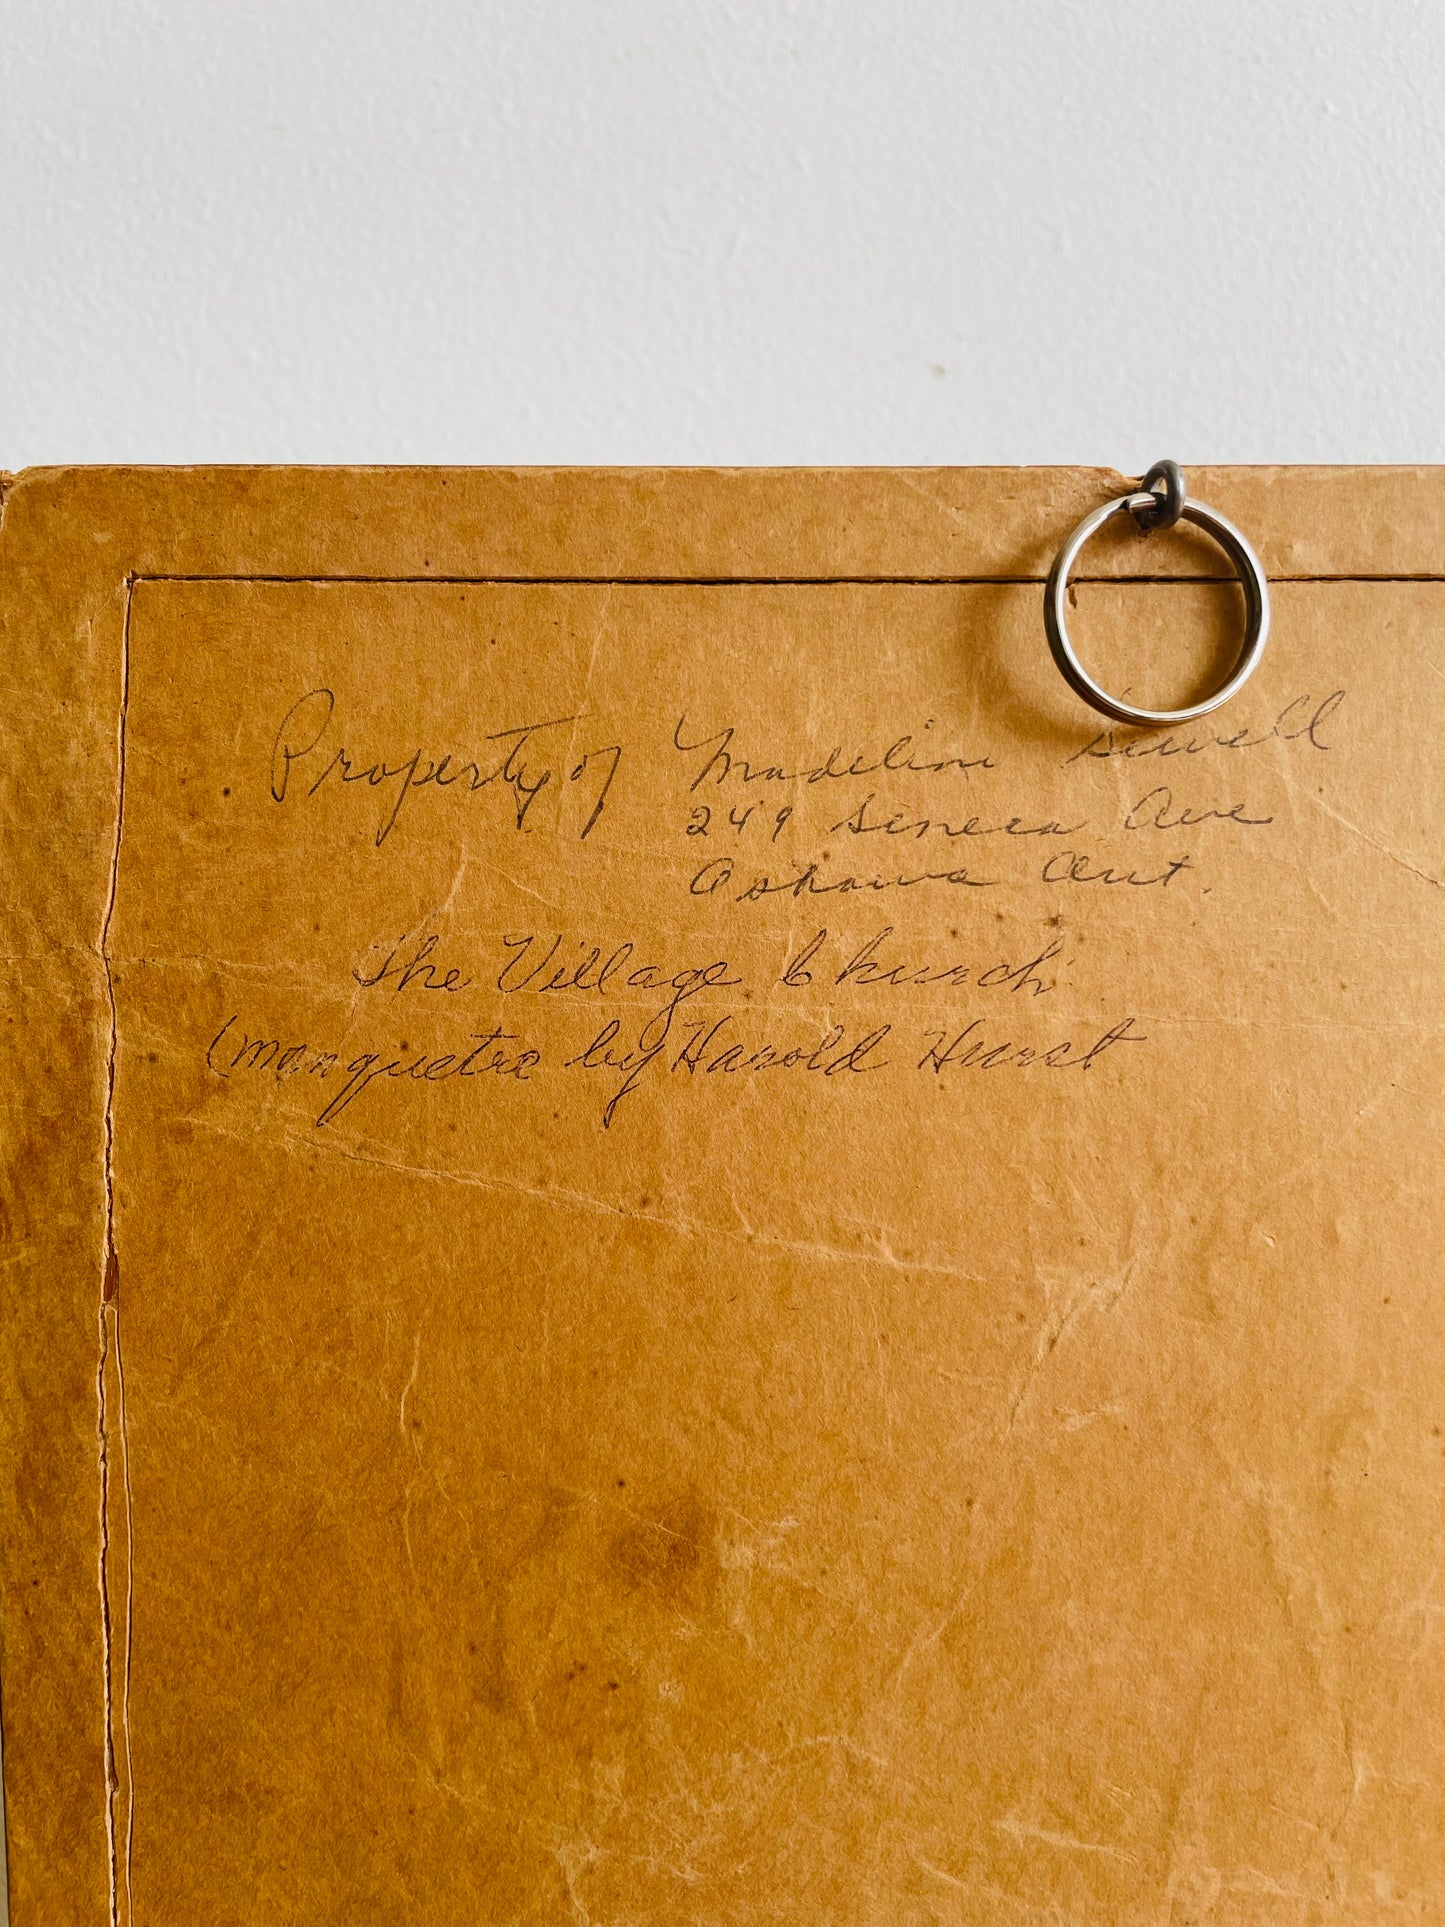 Property of Madeline Sewell
249 Seneca Ave
Oshawa Ont.
The Village Church
(Marquetre by Harold Hurst